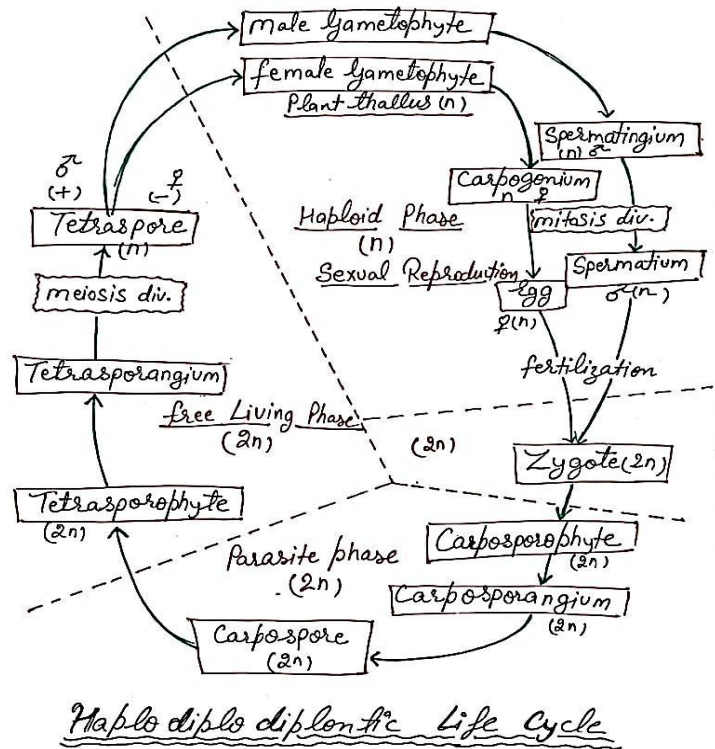 male Gametophyte
female Gametophyte
Plant thallus (n)
Spermatingium
(n) ♂
Carpogonium
n ♀
mitosis div.
Haploid Phase
(n)
Sexual Reproduction
Egg
♀(n)
Spermatium
♂(n)
fertilization
♂
(+)
♀
(-)
Tetraspore
(n)
meiosis div.
Tetrasporangium
free Living Phase
(2n)
(2n)
Zygote (2n)
Tetrasporophyte
(2n)
Carposporophyte
(2n)
Parasite phase
(2n)
Carposporangium
(2n)
Carpospore
(2n)
Haplo diplo diplontic Life Cycle